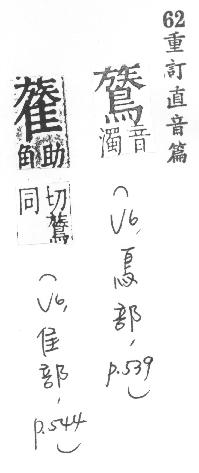 62重訂直音篇
鷟音濁（V6, 鳥部, p.539）
助角切鷟同（V6, 隹部, p.544）